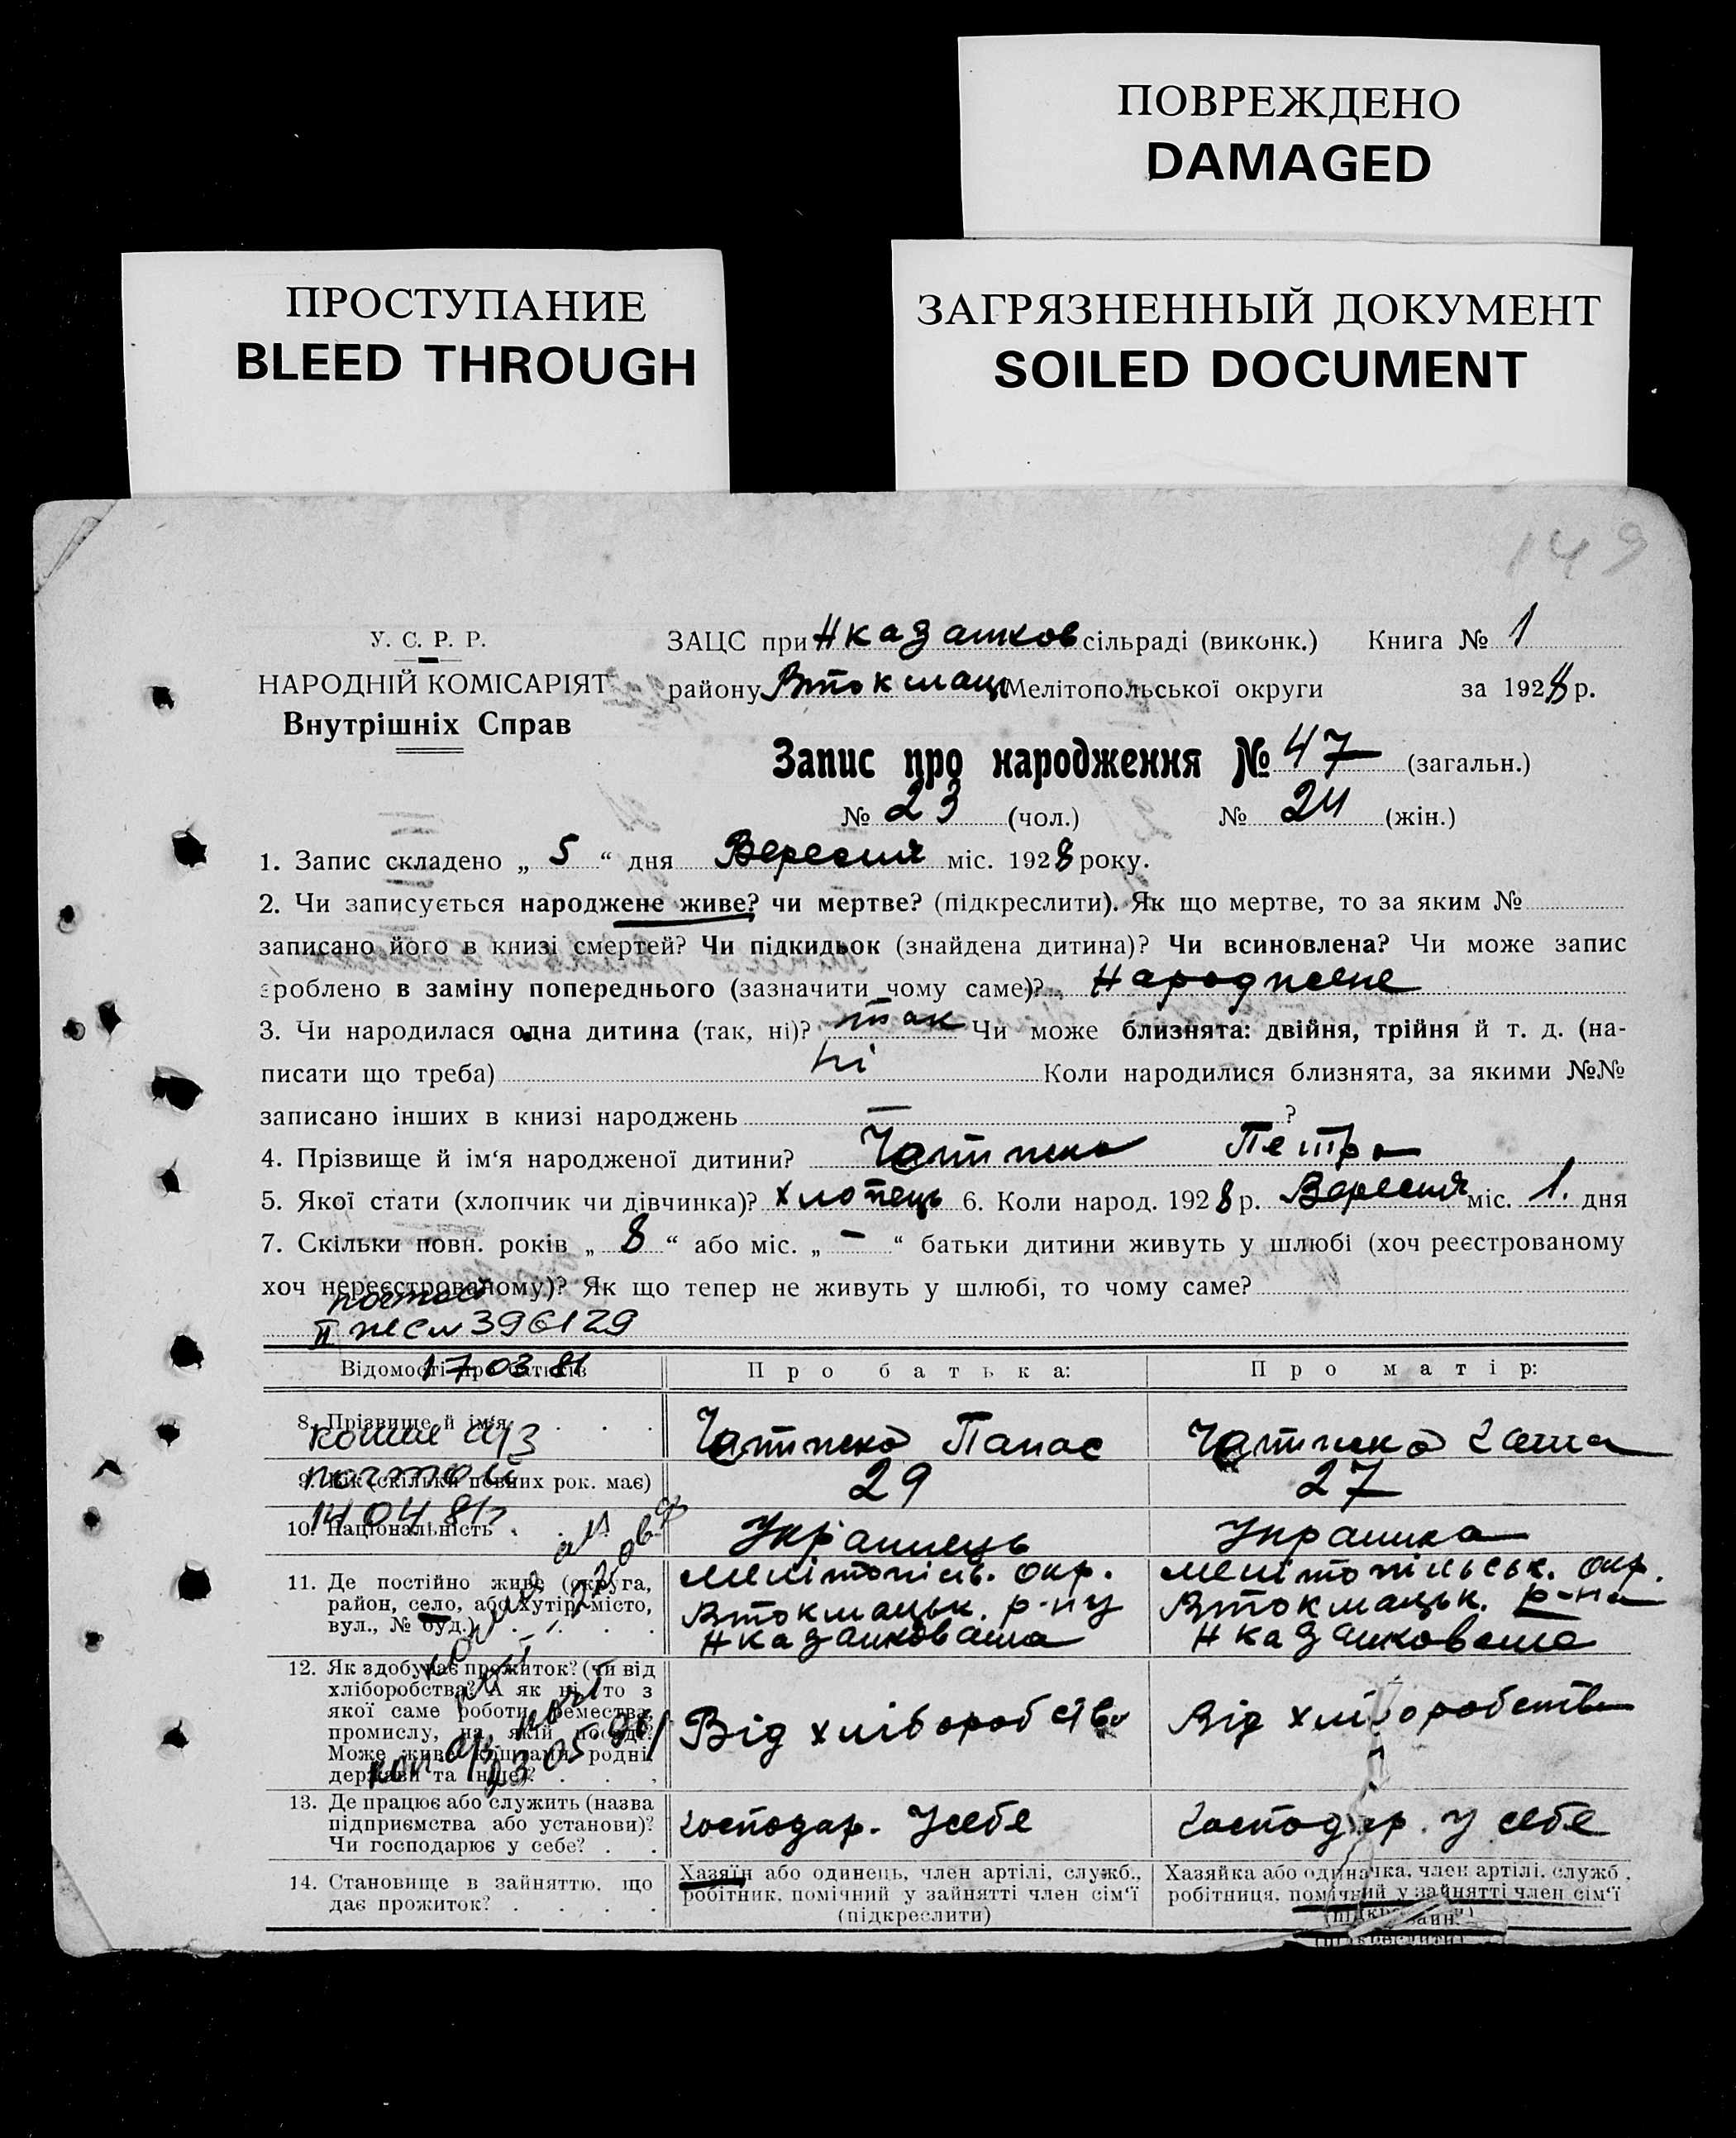 ПОВРЕЖДЕНО
DAMAGED
ПРОСТУПАНИЕ
BLEED THROUGH
ЗАГРЯЗНЕННЫЙ ДОКУМЕНТ
SOILED DOCUMENT
149
У. С. Р. Р.
НАРОДНІЙ КОМІСАРІЯТ
Внутрішніх Справ
ЗАЦС при сільраді (виконк.) Книга № 1
району Втокмац Мелітопольської округи за 1928 р.
Запис про народження № 47 (загальн.)
№ 23 (чол.) № 24 (жін.)
1. Запис складено „ 5 “ дня Вересня міс. 1928 року.
2. Чи записується народжене живе? чи мертве? (підкреслити). Як що мертве, то за яким №
записано його в книзі смертей? Чи підкидьок (знайдена дитина)? Чи всиновлена? Чи може запис
зроблено в заміну попереднього (зазначити чому саме)? Народжене
3. Чи народилася одна дитина (так, ні)? так Чи може близнята: двійня, трійня й т. д. (на-
писати що треба) Ні Коли народилися близнята, за якими №№
записано інших в книзі народжень — ?
4. Прізвище й ім‘я народженої дитини? Петро
5. Якої стати (хлопчик чи дівчинка)? хлопець 6. Коли народ. 1928 р. Вересня міс. 1. дня
7. Скільки повн. років „ 8 “ або міс. „ – “ батьки дитини живуть у шлюбі (хоч реєстрованому
хоч нереєстрованому)? Як що тепер не живуть у шлюбі, то чому саме?
396129
17 03 81
Відомості про батьків
П р о б а т ь к а:
П р о м а т і р:
8. Прізвище й ім‘я . . .
Панас
9. Вік (скільки повних рок. має)
29
27
почтой
14 04 81
10. Національність . . .
Українець
Українка
11. Де постійно живе (округа,
район, село, або хутір, місто,
вул., № буд.) . . . .
Мелітопіль. Окр.
Втокмацьк. р-ну
Мелітопільськ. Окр.
Втокмацьк. р-на
12. Як здобуває прожиток? (чи від
хліборобства? А як ні, то з
якої саме роботи, ремества,
промислу, на якій посаді?
Може живе коштами родні,
держави та інше)? . . .
Від хліборобства
Від хліборобства
13. Де працює або служить (назва
підприємства або установи)?
Чи господарює у себе? . .
Господар. У себе
Господар. у себе
14. Становище в зайняттю, що
дає прожиток? . . . .
Хазяїн або одинець, член артілі, служб.,
робітник, помічний у зайнятті член сім‘ї
(підкреслити)
Хазяйка або одиначка, член артілі, служб.,
робітниця, помічний у зайнятті член сім‘ї
(підкреслити)